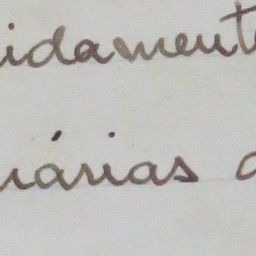 idament
uárias